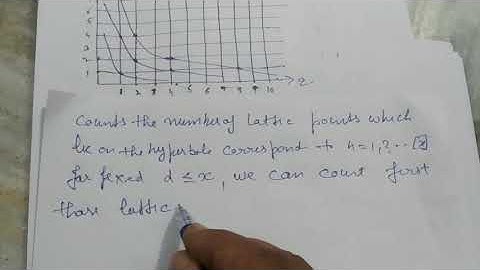 4
2
1
1 2 3 4 5 6 7 8 9 10
Counts the number of lattic points which
lie on the hyperbole correspond to n=1,2,...[x]
for fixed d ≤ x, we can count first
those lattic